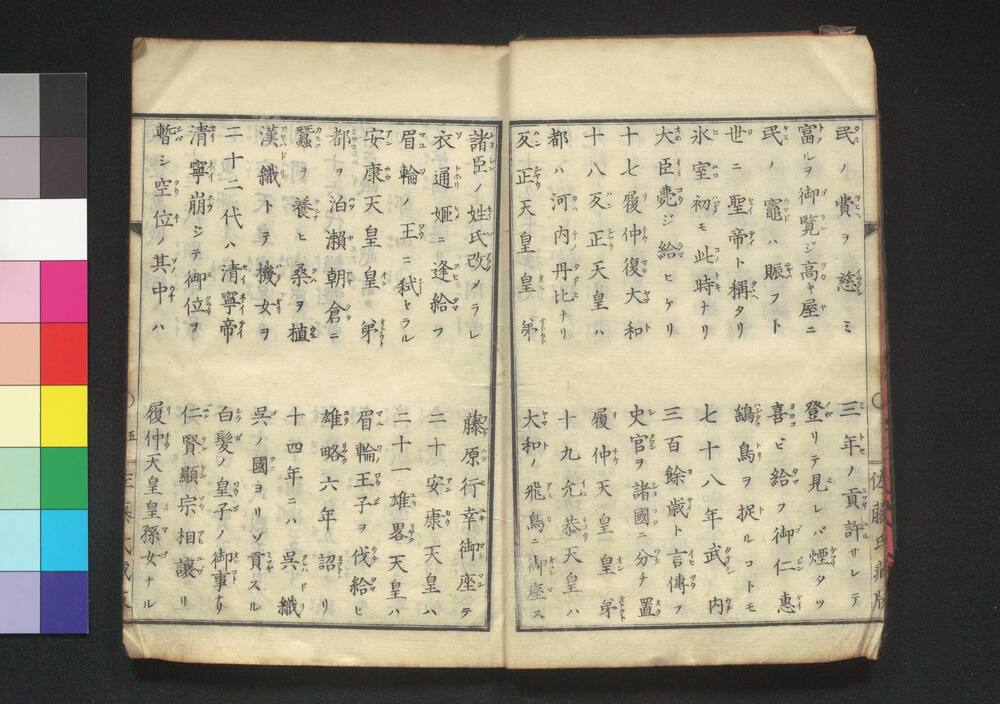 民ノ費ヲ慈ミ 三年ノ貢許サレテ
富ルヲ御覧ジ高キ屋ニ 登リテ見レバ煙タツ
民ノ竈ハ賑フト 喜ビ給フ御仁惠
世ニ聖帝ト稱タリ 鷂鳥ヲ捉ルコトモ
氷室初モ此時ナリ 七十八年武内
大臣薨ジ給ヒケリ 三百餘歳ト言傳フ
十七履仲復大和 史官ヲ諸國ニ分チ置
十八反正天皇ハ 履仲天皇皇弟
都ハ河内丹比ナリ 十九允恭天皇ハ
反正天皇皇弟 大和ノ飛鳥ニ御座ス
諸臣ノ姓氏改メラレ 藤原行幸御座テ
衣通姬ニ逢給フ 二十安康天皇ハ
眉輪ノ王ニ弑セラル 二十一雄畧天皇ハ
安康天皇皇弟 眉輪王子ヲ伐給ヒ
都ヲ泊瀬朝倉ニ 雄略六年詔リ
蠶ヲ養ヒ桑ヲ植 十四年ニハ呉織
漢織トテ機女ヲ 呉ノ國ヨリゾ貢スル
二十二代ハ清寧帝 白髮ノ皇子ノ御事ナリ
清寧崩ジテ御位ヲ 仁賢顯宗相讓リ
暫シ空位ノ其中ハ 履仲天皇皇孫女ナル
五